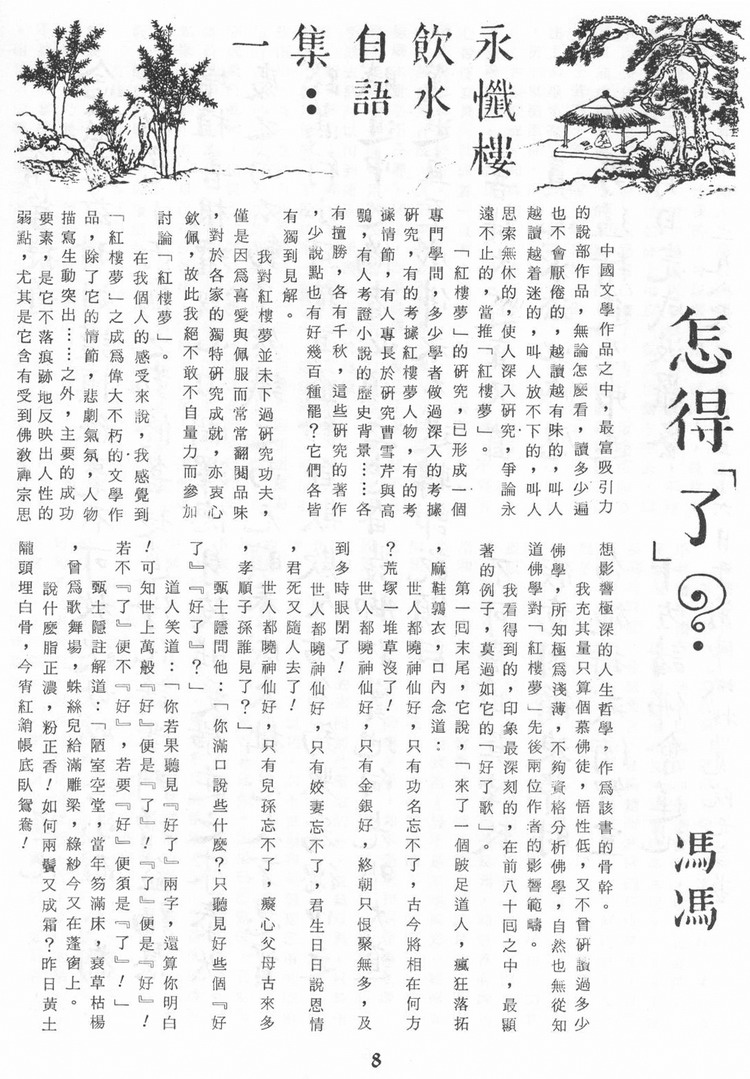 永懺樓
飲水
自語
集：
一
怎得「了」？
馮馮
中國文學作品之中，最富吸引力
的說部作品，無論怎麽看，讀多少遍
也不會厭倦的，越讀越有味的，叫人
越讀越着迷的，叫人放不下的，叫人
思索無休的，使人深入硏究，爭論永
遠不止的，當推「紅樓夢」。
「紅樓夢」的硏究，已形成一個
專門學問，多少學者做過深入的考據
硏究，有的考據紅樓夢人物，有的考
據情節，有人專長於硏究曹雪芹與高
鶚，有人考證小說的歷史背景……各
有擅勝，各有千秋，這些硏究的著作
，少說點也有好幾百種罷？它們各皆
有獨到見解。
我對紅樓夢並未下過硏究功夫，
僅是因爲喜愛與佩服而常常翻閱品味
，對於各家的獨特硏究成就，亦衷心
欽佩，故此我絕不敢不自量力而參加
討論「紅樓夢」。
在我個人的感受來說，我感覺到
「紅樓夢」之成爲偉大不朽的文學作
品，除了它的情節，悲劇氣氛，人物
描寫生動突出……之外，主要的成功
要素，是它不落痕跡地反映出人性的
弱點，尤其是它含有受到佛敎禪宗思
想影響極深的人生哲學，作爲該書的骨幹。
我充其量只算個慕佛徒，悟性低，又不曾硏讀過多少
佛學，所知極爲淺薄，不夠資格分析佛學，自然也無從知
道佛學對「紅樓夢」先後兩位作者的影響範疇。
我看得到的，印象最深刻的，在前八十囘之中，最顯
著的例子，莫過如它的「好了歌」。
第一囘末尾，它說，「來了一個跛足道人，瘋狂落拓
，麻鞋鶉衣，口內念道：
世人都曉神仙好，只有功名忘不了，古今將相在何方
？荒塚一堆草沒了！
世人都曉神仙好，只有金銀好，終朝只恨聚無多，及
到多時眼閉了！
世人都曉神仙好，只有姣妻忘不了，君生日日說恩情
，君死又隨人去了！
世人都曉神仙好，只有兒孫忘不了，癡心父母古來多
，孝順子孫誰見了？」
甄士隱問他：「你滿口說些什麽？只聽見好些個『好
了』『好了』？」
道人笑道：「你若果聽見『好了』兩字，還算你明白
！可知世上萬般『好』便是『了』！『了』便是『好』！
若不『了』便不『好』，若要『好』便須是『了』！」
甄士隱註解道：「陋室空堂，當年笏滿床，衰草枯楊
，曾爲歌舞場，蛛絲兒給滿雕梁，綠紗今又在蓬窗上。
說什麽脂正濃，粉正香！如何兩鬢又成霜？昨日黃土
隴頭埋白骨，今宵紅綃帳底臥鴛鴦！
8